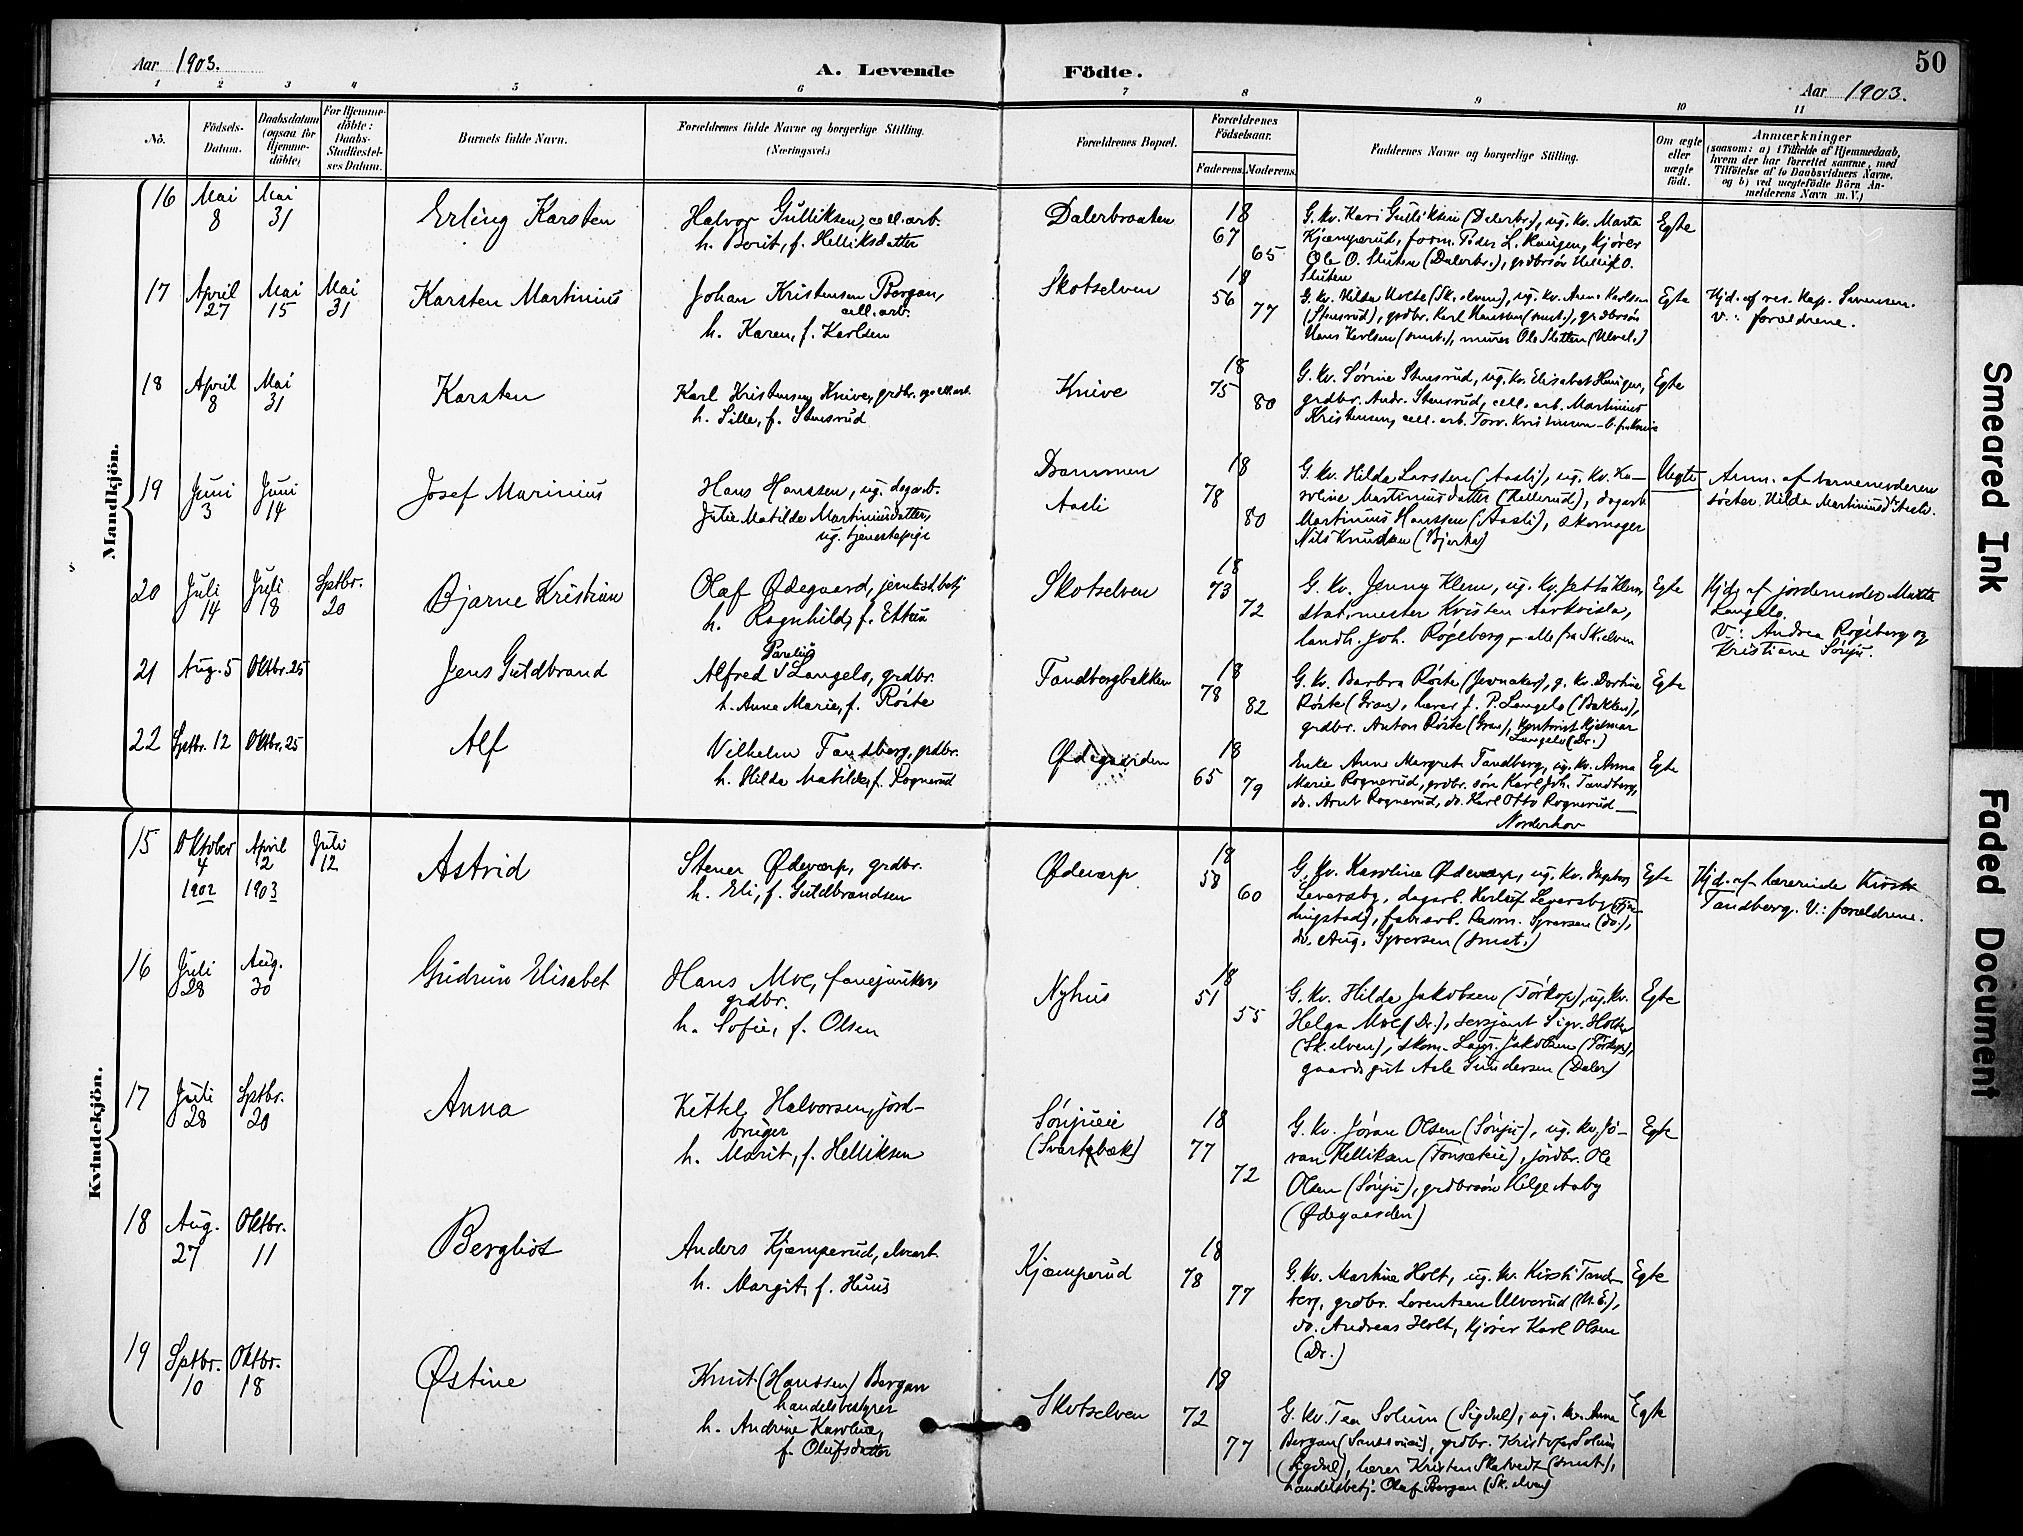 Aar 1903.
A. Levende Fødte.
50
Aar 1903.
1 2 3 4 5 6 7 8 9 10 11
No.
Fødsels-Datum.
Daabsdatum (ogsaa for Hjemme-døbte)
For Hjemme-døbte: Daabs-Stadfæstel-ses Datum.
Barnets fulde Navn.
Forældrenes fulde Navne og borgerlige Stilling. (Næringsvei.)
Forældrenes Bopæl.
Forældrenes Fødselsaar.
Faderens. Moderens.
Faddernes Navne og borgerlige Stilling.
Om ægte eller uægte født.
Anmærkninger
(saasom: a) i Tilfælde af Hjemmedaab,
hvem der har forrettet samme, med
Tilføielse af to Daabsvidners Navne,
og b) ved uægtefødte Børn An-
melderens Navn m. V.)
Mandkjøn.
16 Mai 8 Mai 31
Erling Karsten
Halvor Gulliksen, cell. arb.
h. Berit, f. Helliksdatter
Dalerbraaten
18 67 65
G. kv. Kari Gulliksen (Dalerbr.), ug. kv. Marta
Kjæmperud, form. Peder L. Haugen, kjører
Ole O. Sluten (Dalerbr.), grdbrsøn Hellik O.
Sluten
Egte
17 April 27 Mai 15 Mai 31
Karsten Martinius
Johan Kristensen Bergan,
cell. arb.
h. Karen, f. Karlsen
Skotselven
18 56 77
G. kv. Hilda Holte (Sk.elven), ug. kv. Anne Karlsen
(Stensrud), grdbr. Karl Hanssen (smst.), grdbrsøn
Hans Karlsen (smst.), murer Ole Sletten (Ulvel.)
Egte
Hjd. af res. kap. Svensen.
V.: forældrene.
18 April 8 Mai 31
Karsten
Karl Kristensen Knive, grdbr. og cell. arb.
h. Sille, f. Stensrud
Knive
18 75 80
G. kv. Sørine Stensrud, ug. kv. Elisabet Haugen,
grdbr. Andr. Stensrud, cell. arb. Martinius
Kristensen, cell. arb. Torv. Kristensen
Egte
19 Juni 3 Juni 14
Josef Marinius
Hans Hanssen, ug. dagarb.
Julie Matilde Martiniusdatter,
ug. tjenestepige
Drammen
Aasli
18 78 80
G. kv. Hilda Larsen (Aasli), ug. kv. Ka-
roline Martinusdatter (Kallerud), dagarb.
Martinius Hanssen (Aasli), skomager
Nils Knudsen (Bjerka)
Uegte
Anm. af barnemoderens
søster Hilda Martiniusd. Aasli.
20 Juli 14 Juli 18 Sptbr. 20
Bjarne Kristian
Olaf Ødegaard, jernbd.betj.
h. Ragnhild, f.
Skotselven
18 73 72
G. kv. Jenny Klem, ug. kv. Jetta Klem,
stat.mester Kristen
landh. Joh. Røgeberg, alle fra Sk.elven
Egte
Hjd. af jordemoder Marta
Langelo.
V.: Andrea Røgeberg og
Kristiane Sønju.
21 Aug. 5 Oktbr. 25
Jens Guldbrand
Parelius
Alfred Langelo, grdbr.
h. Anna Marie, f. Røste
Tandbergbakken
18 78 82
G. kv. Barbra Røste (Jevnaker), g. kv. Dortine
Røste (Gran), lærer f. P. Langelo (Bakken),
grdbr. Anton Røste (Gran), kontorist Hjalmar
Langelo (Dr.)
Egte
22 Sptbr. 12 Oktbr. 25
Alf
Vilhelm Tandberg, grdbr.
h. Hilda Matilde, f. Rognerud
Ødegaarden
18 65 79
Enke Anne Margret Tandberg, ug. kv. Anna
Marie Rognerud, grdbr. søn Karl Joh. Tandberg,
do. Arnt Rognerud, do. Karl Otto Rognerud—
Norderhov
Egte
Kvindekjøn.
15 Oktober 4 1902 April 2 1903 Juli 12
Astrid
Stener Ødeværp, grdbr.
h. Eli, f. Guldbrandsen
Ødeværp
18 58 60
G. kv. Karoline Ødeværp, ug. kv. Ingeborg
Leversby, dagarb. Herlof Leversby
fabr.arb. Rasm. Syversen (do.),
do. Aug. Syversen (smst.)
Egte
Hjd. af lærerinde Kirsti
Tandberg. V.: forældrene.
16 Juli 28 Aug. 30
Gudrun Elisabet
Hans Moe, fanejunker,
grdbr.
h. Sofie, f. Olsen
Nyhus
18 51 55
G. kv. Hilda Jakobsen (Torkop), ug. kv.
Helga Moe (Dr.), sersjant Sigv. Holte
(Sk.elven), skom. Laur. Jakobsen (Torkop),
gaardsgut Asle Gundersen (Daler)
Egte
17 Juli 28 Sptbr. 20
Anna
Kittel Halvorsen, jord-
bruger
h. Marit, f. Helliksen
Sønjueie
(Svartebæk)
18 77 72
G. kv. Jøran Olsen (Sønju), ug. kv. Jø-
ran Helliksen (Fonsækeie), jordbr. Ole
Olsen (Sønju), grdbrsøn Helge Aaby
(Ødegaarden)
Egte
18 Aug. 27 Oktbr. 11
Bergliot
Anders Kjæmperud, elvearb.
h. Margit, f. Huus
Kjæmperud
18 78 77
G. kv. Martine Holt, ug. kv. Kirsti Tand-
berg, grdbr. Lorentsen Ulverud (N. E.),
do. Andreas Holt, kjører Karl Olsen
(Dr.)
Egte
19 Sptbr. 10 Oktbr. 18
Østine
Knut (Hanssen) Bergan
handelsbestyrer
h. Andrine Karoline,
f. Olufsdatter
Skotselven
18 72 77
G. kv. Tea Solum (Sigdal), ug. kv. Anna
Bergan grdbr. Kristofer Solum
(Sigdal), lærer Kristen Skatvedt (smst.),
handelsbetj. Olaf Bergan (Sk.elven)
Egte
Smeared Ink
Faded Document